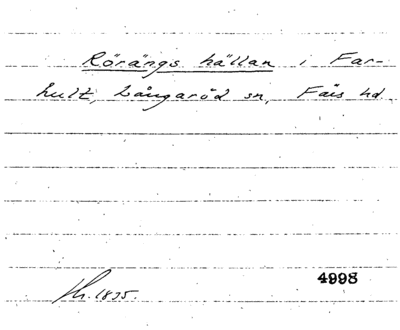 Rörängs hällan i Far-
hult, Långaröd sn, Färs hd
4998
Hr. 1835.